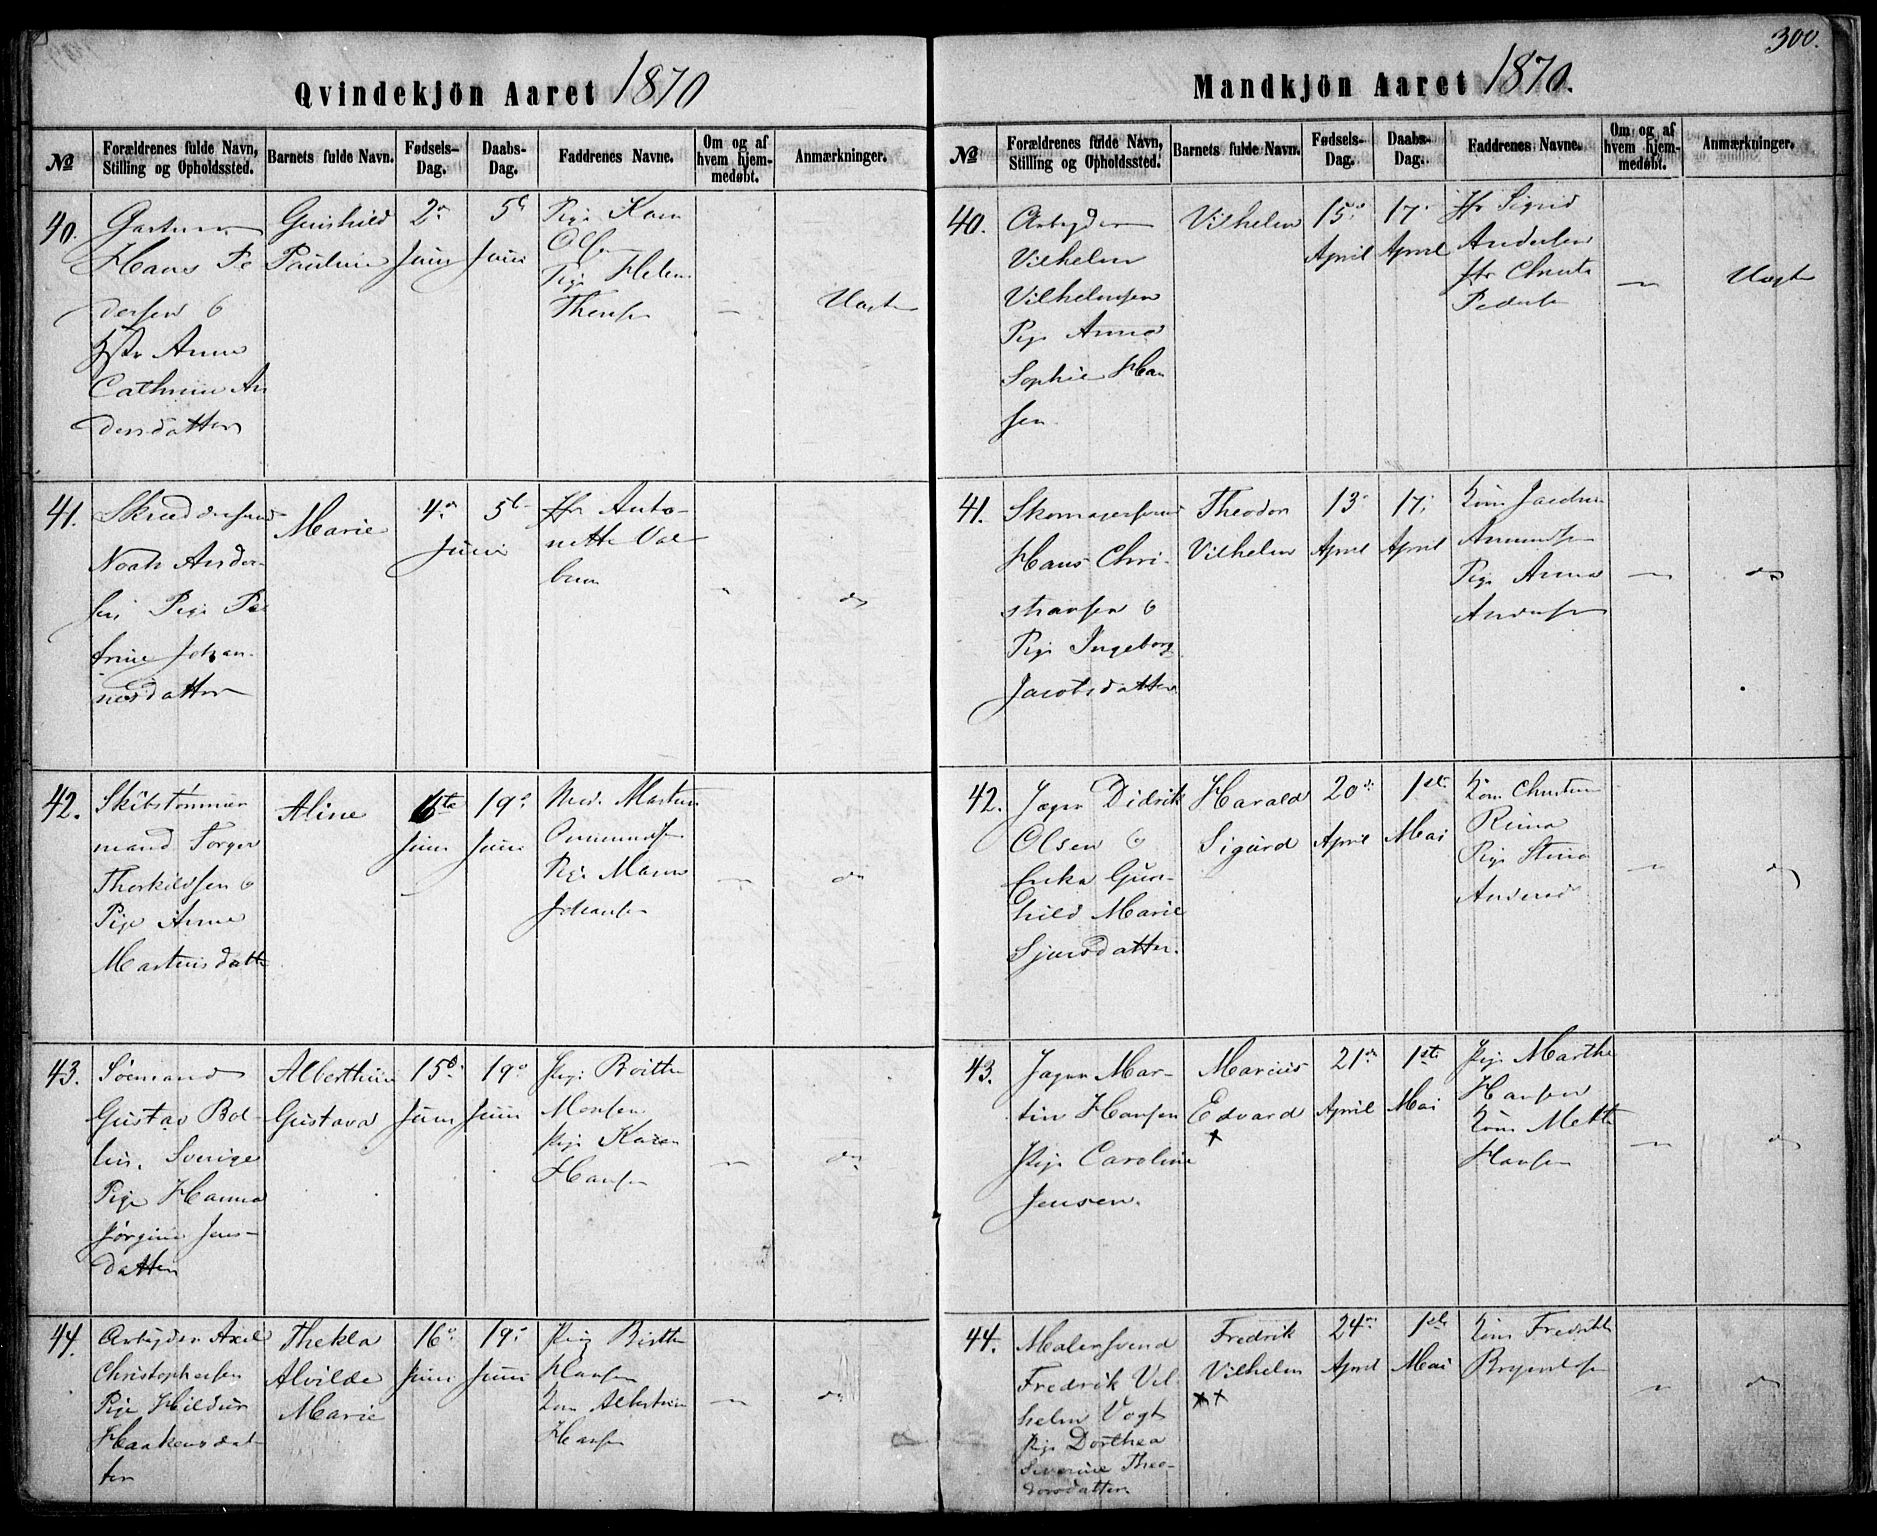 300.
Qvindekjön Aaret 1870
№
Forældrenes fulde Navn,
Stilling og Opholdssted.
Barnets fulde Navn.
Fødsels-
Dag.
Daabs-
Dag.
Faddrenes Navne.
Om og af
hvem hjem-
medøbt.
Anmærkninger.
40.
Hans Pe
dersen &
Anne
Cathrine An
dersdatter
Gunhild
Pauline
2
Juni
5
Juni
Pige Karen
Olsen
Pige Helene
Uægte
41.
Skræddersvend
Noah Ander-
sen Pige Pe
trine Johan-
nesdatter
Marie
4
Juni
5
Anto-
nette
42.
Skibstømmer
mand Torger
Thorkildsen &
Pige Anne
Martinsdatter
Aline
6te
Juni
19
Juni
Mad. Martin
Pige Maren
Johansen
do
43.
Sømand
Gustav Bol-
lin, Sverige
Pige Hanna
Jørgine Jens-
datter
Alberthine
Gustava
15
Juni
19
Juni
Pige Britte
Monsen
Pige Karen
Hansen
do
44.
Arbeider Axel
Christophersen
Pige Hildur
Haakensdat-
ter
Thekla
Alvilde
Marie
16
Juni
19
Juni
Pige Britte
Hansen
Kone Albertine
Hansen
do
Mandkjön Aaret 1870.
№
Forældrenes fulde Navn,
Stilling og Opholdssted.
Barnets fulde Navn.
Fødsels-
Dag.
Daabs-
Dag.
Faddrenes Navne.
Om og af
hvem hjem-
medøbt.
Anmærkninger.
40.
Arbeider
Vilhelm
Vilhelmsen
Pige Anna
Sophie Han
sen
Vilhelm
15
April
17
April
Jfr Sigrid
Andersen
Jfr Christi
Pedersen
Uægte
41.
Skomagersvend
Hans Chri-
stiansen &
Pige Ingeborg
Jacobsdatter
Theodor
Vilhelm
13
April
17
April
Kone
Amundsen
Pige Anna
Andersen
do
42.
Jæger Didrik
Olsen &
Erika Gun-
hild Marie
Sjursdatter.
Harald
Sigurd
20
April
1ste
Mai
Kone Christine
Pige Stina
do
43.
Jæger Mar-
tin Hansen
Pige Caroline
Jensen.
Marius
Edvard
21
April
1ste
Mai
Pige Marthe
Hansen
Kone Mette
Hansen
do
44.
Malersvend
Fredrik Vil
helm Vogt
Pige Dorthea
Severine Theo-
dorsdatter
Fredrik
Vilhelm
24
April
1ste
Mai
Kone Fredrikke
do